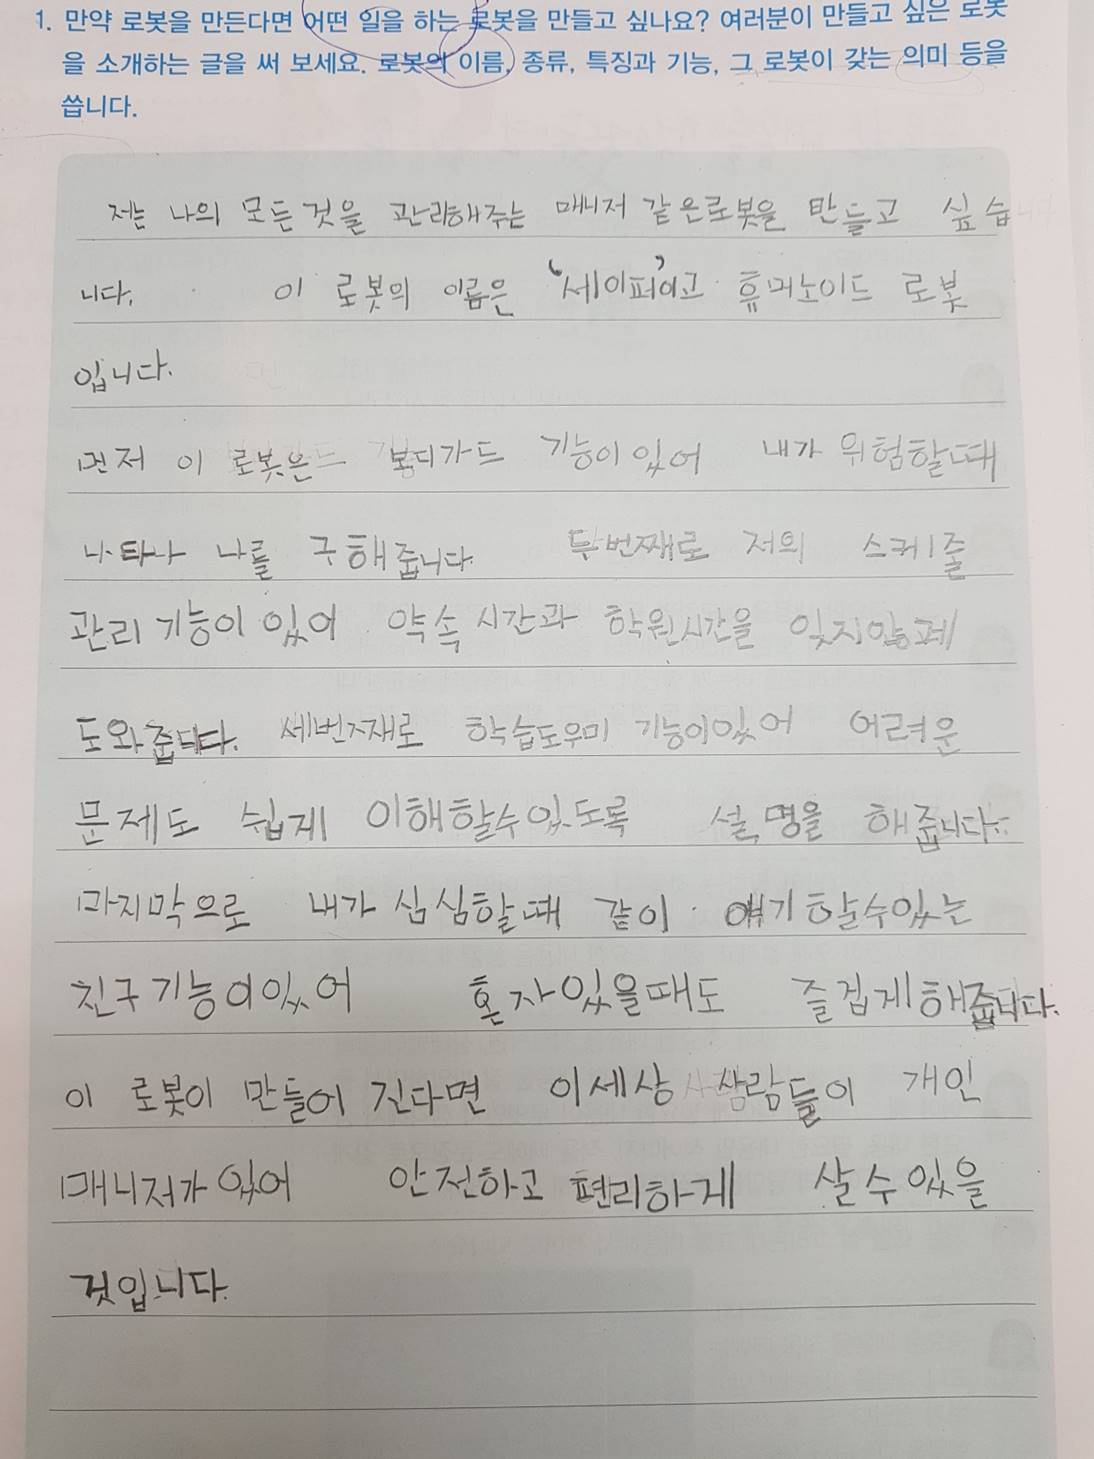 1. 만약 로봇을 만든다면 어떤 일을 하는 로봇을 만들고 싶나요? 여러분이 만들고 싶은 로봇
을 소개하는 글을 써 보세요. 로봇의 이름, 종류, 특징과 기능, 그 로봇이 갖는 의미 등을
씁니다.
저는 나의 모든 것을 관리해주는 매니저 같은로봇을 만들고 싶습
니다. 이 로봇의 이름은 '세이퍼'이고 휴머노이드 로봇
입니다.
먼저 이 로봇은 보디가드 기능이 있어 내가 위험할때
나타나 나를 구해줍니다. 두번째로 저의 스케줄
관리 기능이 있어 약속 시간과 학원시간을 잊지않게
도와줍니다. 세번째로 학습도우미 기능이있어 어려운
문제도 쉽게 이해할수있도록 설명을 해줍니다.
마지막으로 내가 심심할때 같이 얘기할수있는
친구기능이있어 혼자있을때도 즐겁게해줍니다.
이 로봇이 만들어 진다면 이세상 사람들이 개인
매니저가 있어 안전하고 편리하게 살수있을
것입니다.